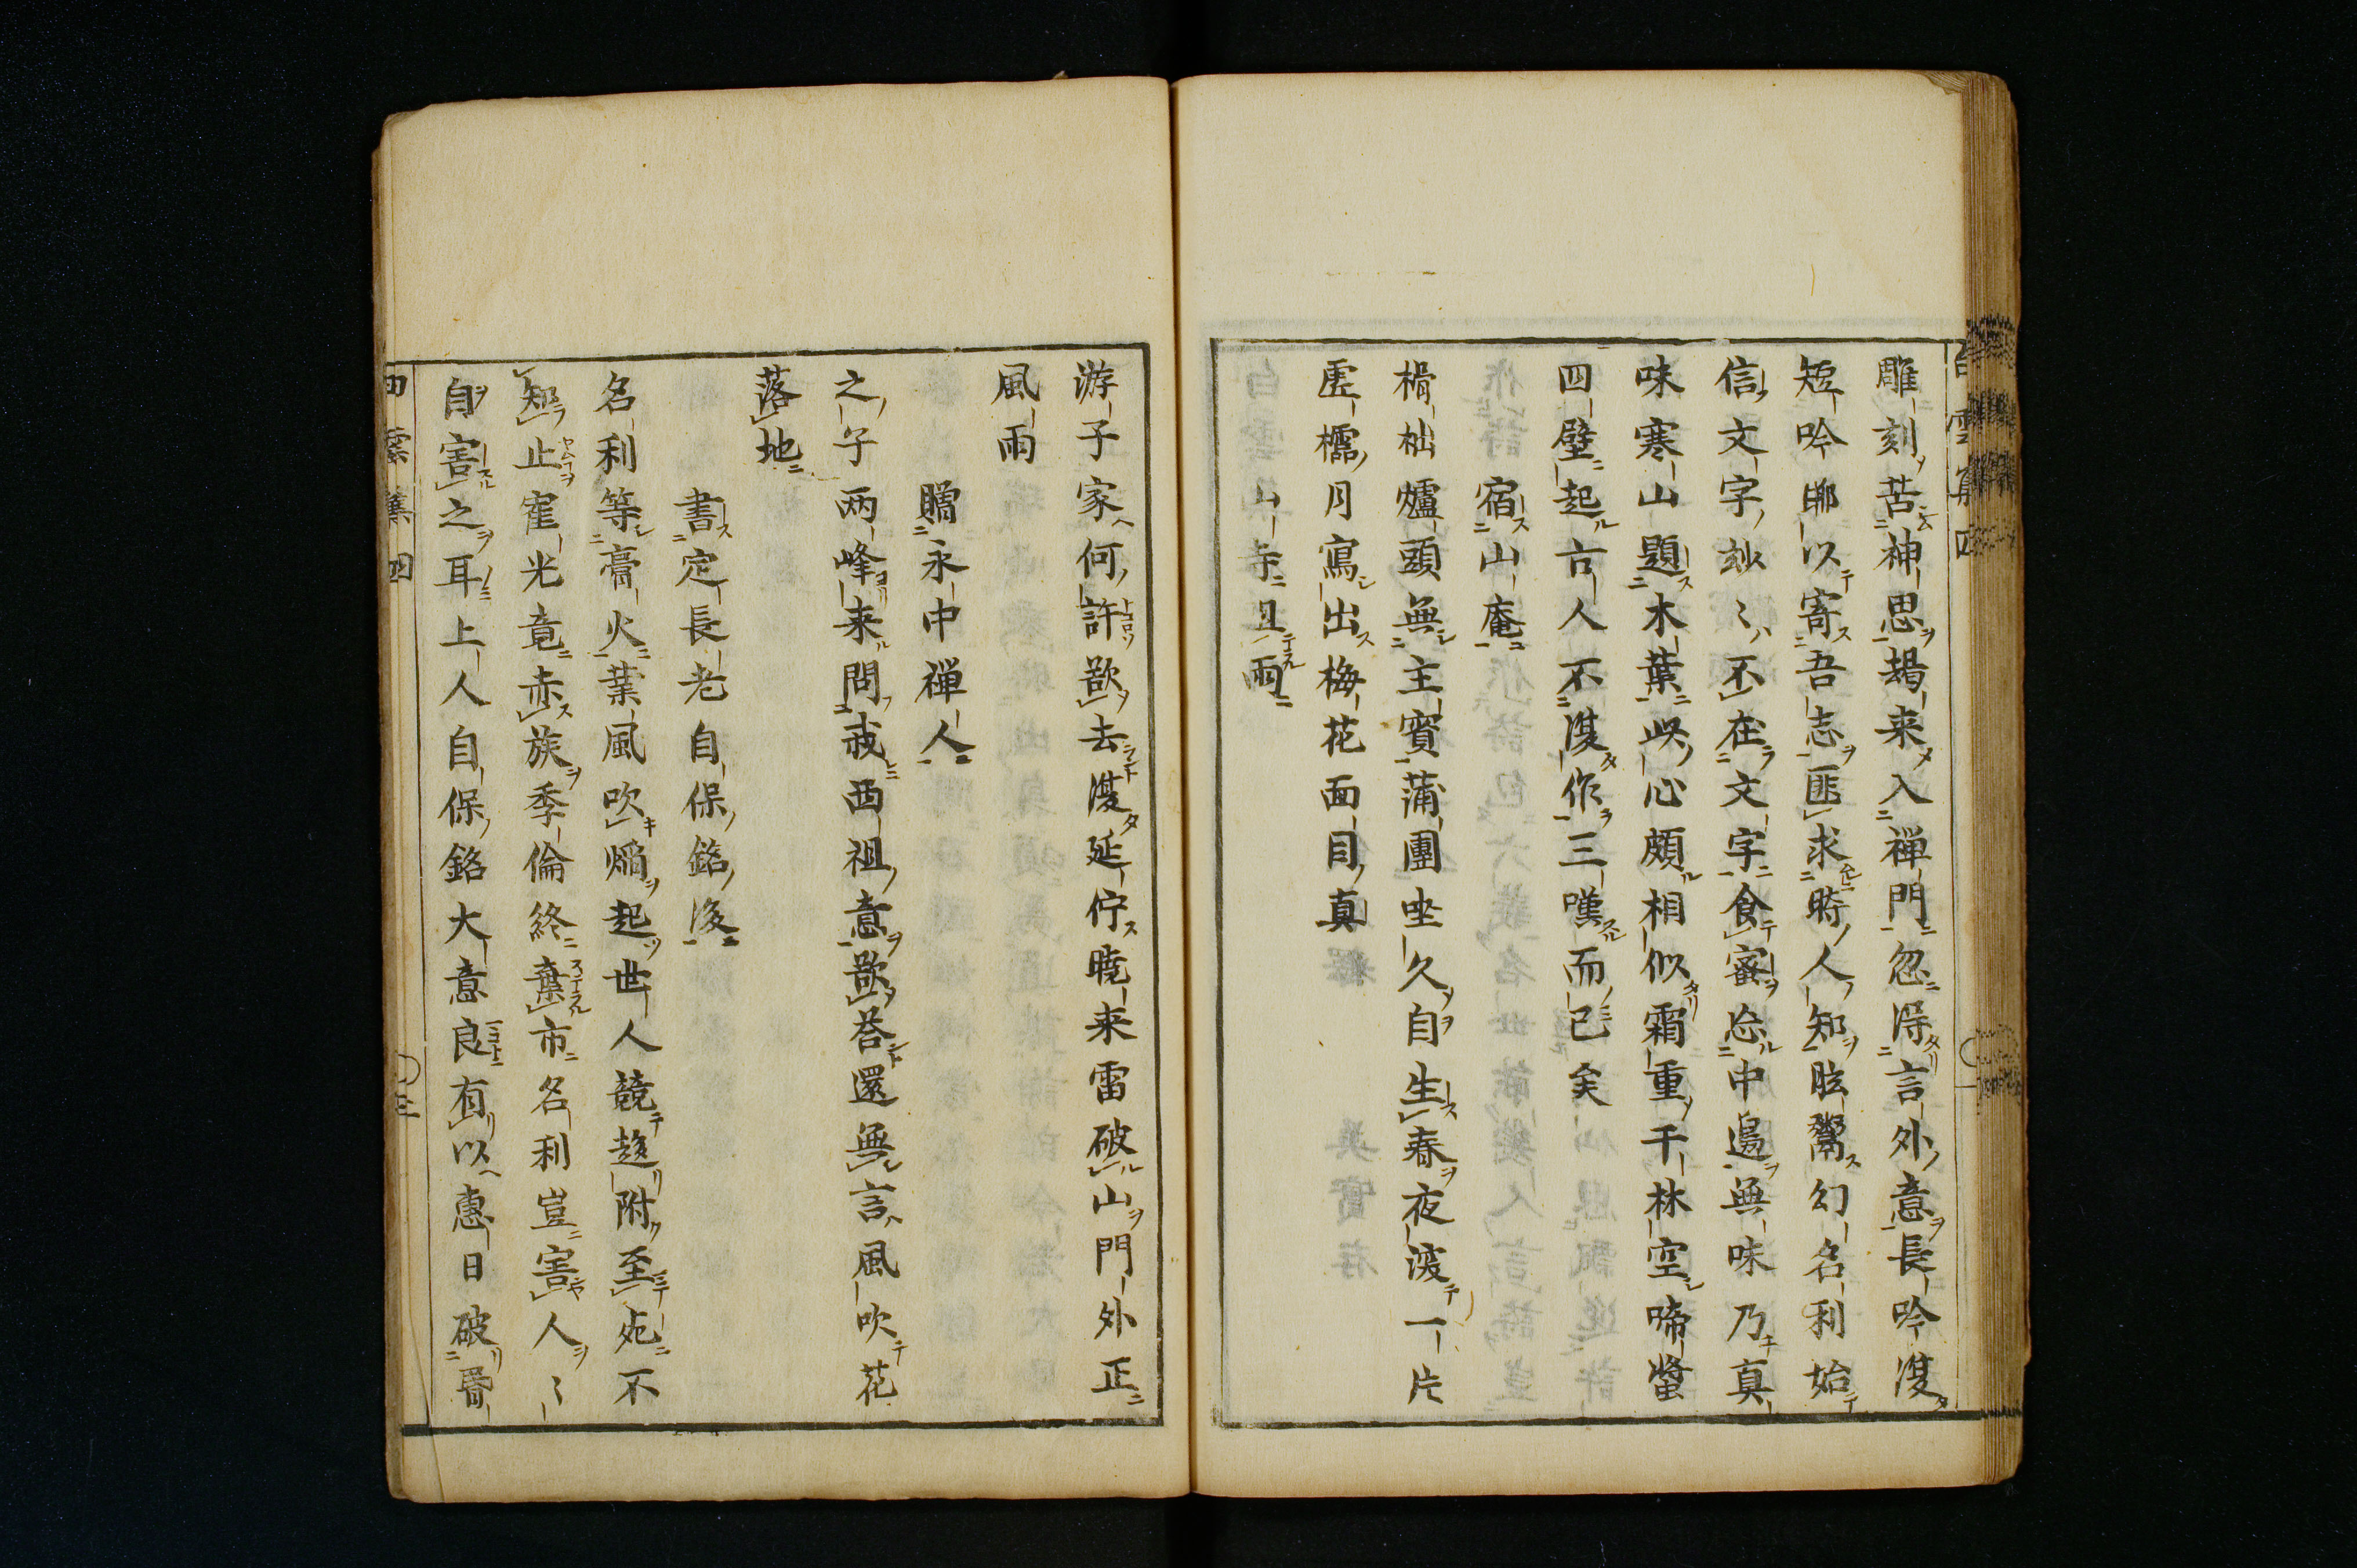 雕刻苦神思朅来入禅門忽得言外意長吟復
短吟聊以寄吾志匪求時人知眩鬻幻名利始
信文字玅〻不在文字食蜜忘中邉無味乃真
味寒山題木葉此心頗相似霜重千林空啼螀
四壁起古人不復作三嘆而已矣
宿山庵
榾柮爐頭無主賓蒲團坐久自生春夜深一片
虚櫺月寫出梅花面目真
山寺且雨
游子家何許欲去復延佇曉来雷破山門外正
風雨
贈永中禅人
之子两峰来問我西祖意欲荅還無言風吹花
落地
書定長老自保銘後
名利等膏火業風吹焔起世人競趍附至死不
知止寉光竟赤族季倫終棄市名利豈害人〻
自害之耳上人自保銘大意良有以惠日破昬
四
三